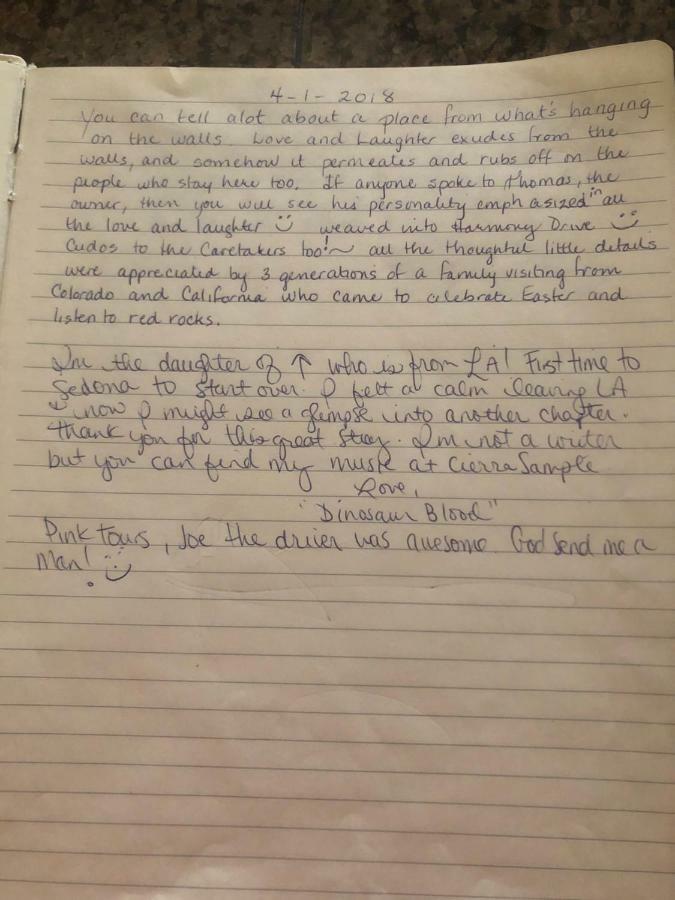 4-1-2018
You can tell alot about a place from what's hanging
on the walls. Love and Laughter exudes from the
walls, and somehow it permeates and rubs off on the
people who stay here too. If anyone spoke to Thomas, the
owner, then you will see his personality emphasized in all
the love and laughter :) weaved into Harmony Drive :)
Cudos to the Caretakers too!~ all the thoughtful little details
were appreciated by 3 generations of a family visiting from
Colorado and California who came to celebrate Easter and
listen to red rocks.
I'm the daughter of ↑ who is from LA! First time to
Sedona to start over. I felt a calm leaving LA
now I might see a glimpse into another chapter.
thank you for this great stay. I'm not a writer
but you can find my music at Cierra Sample
Love,
"Dinosaur Blood"
Pink Tours, Joe the driver was awesome. God send me a
Man! :)